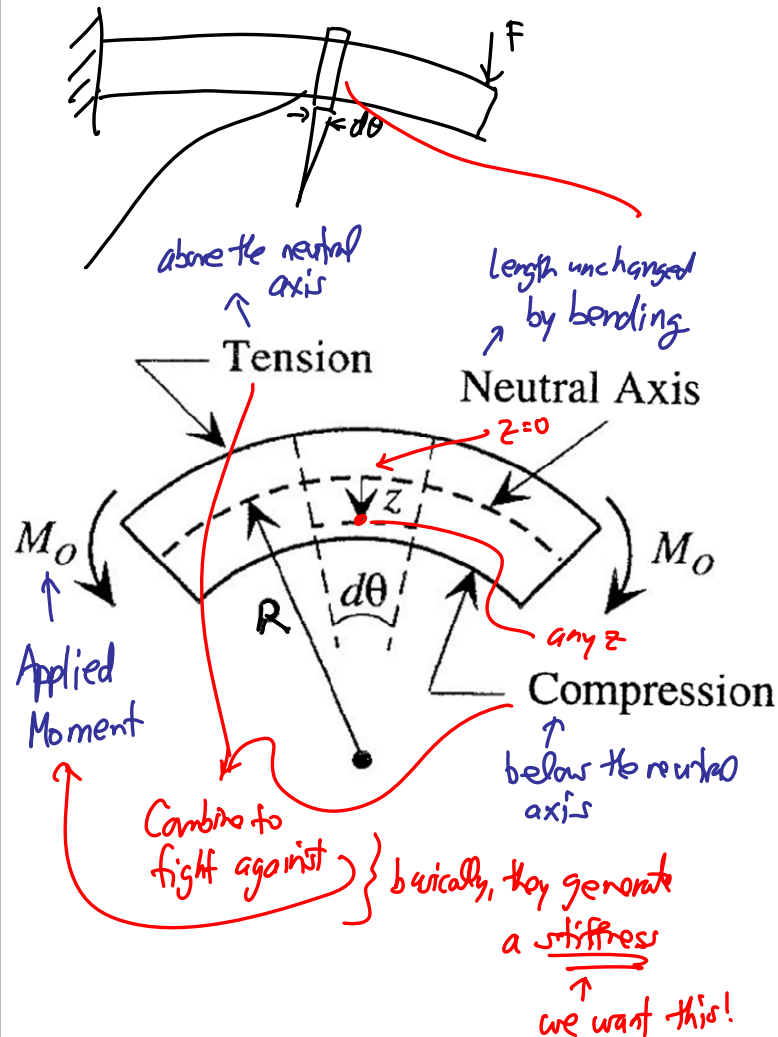 F
dθ
above the neutral
axis
length unchanged
by bending
Tension
Neutral Axis
z=0
z
M_O
M_O
dθ
R
any z
Applied
Moment
Compression
below the neutral
axis
Combine to
fight against
basically, they generate
a stiffness
we want this!